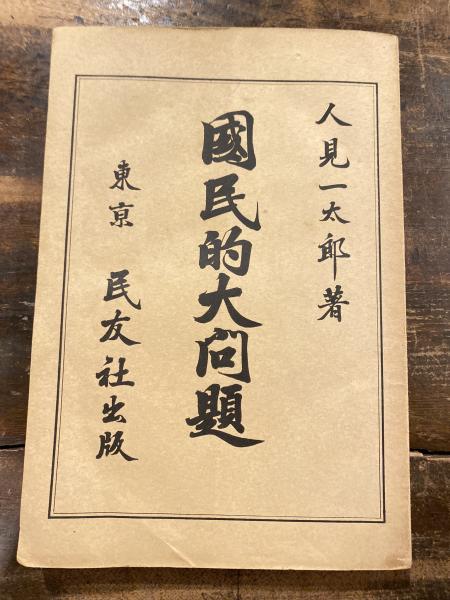 人見一太郎著
國民的大問題
東京 民友社出版